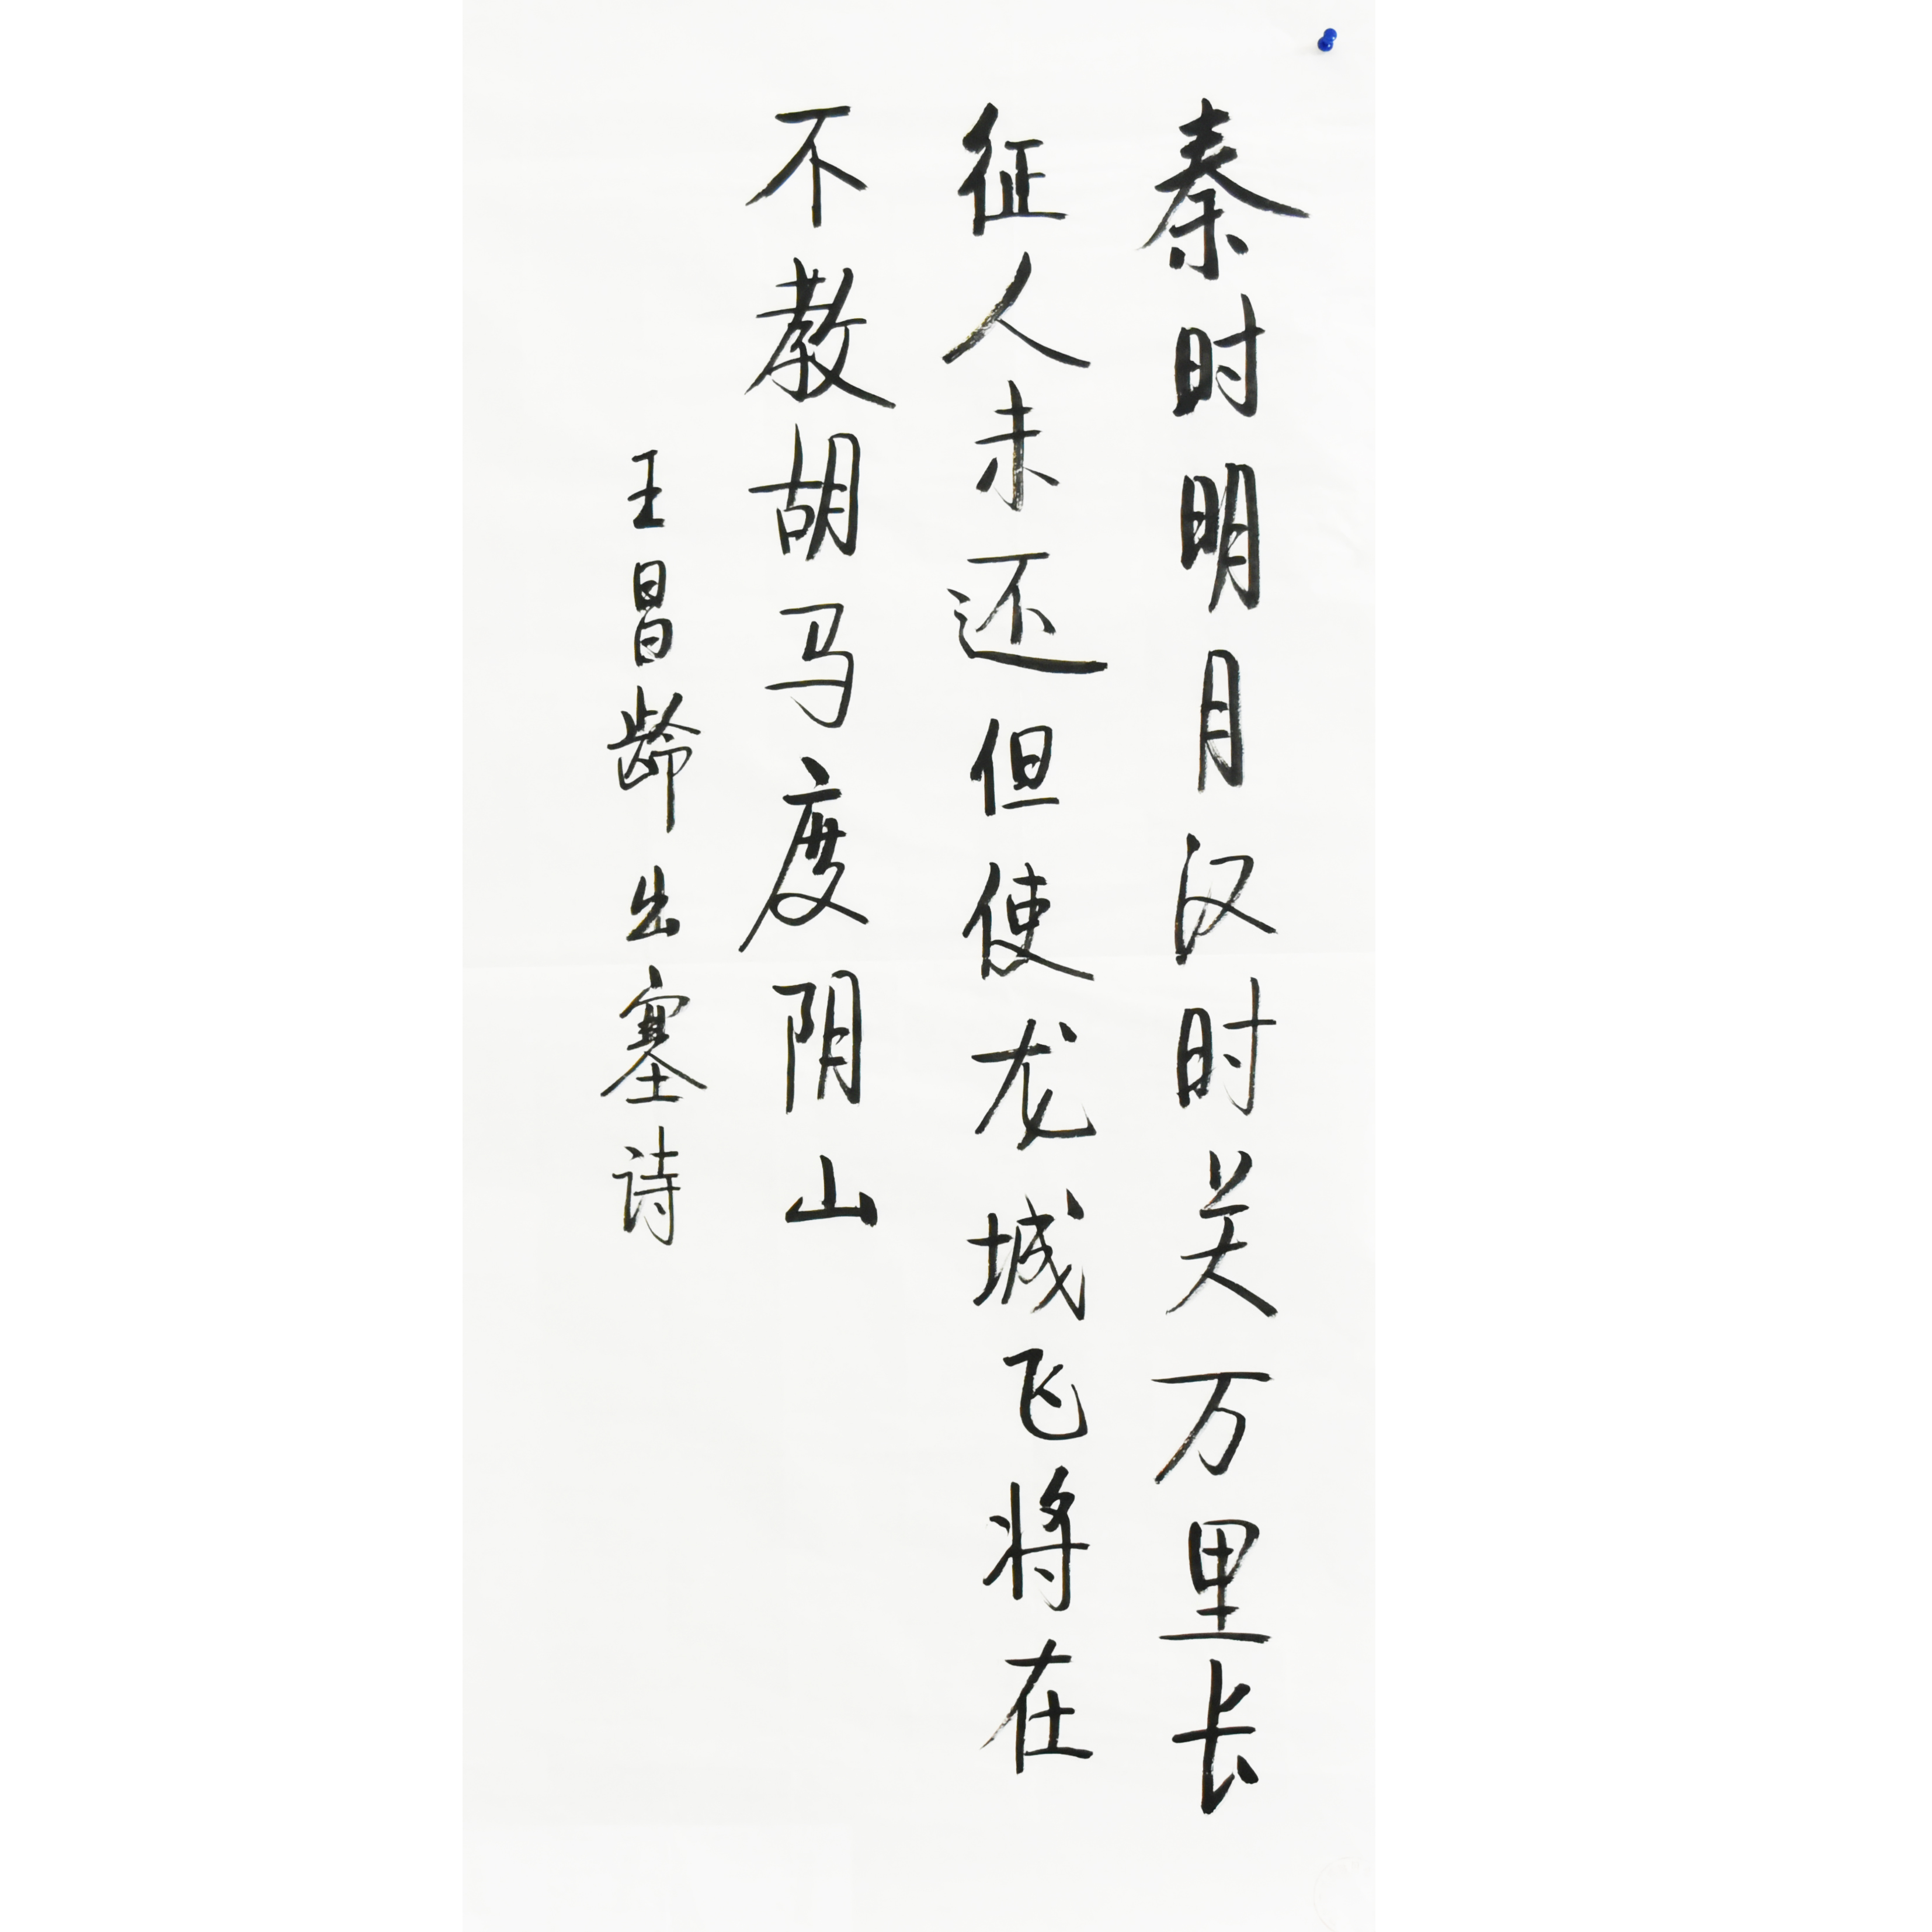 秦时明月汉时关万里长
征人未还但使龙城飞将在
不教胡马度阴山
王昌龄出塞诗